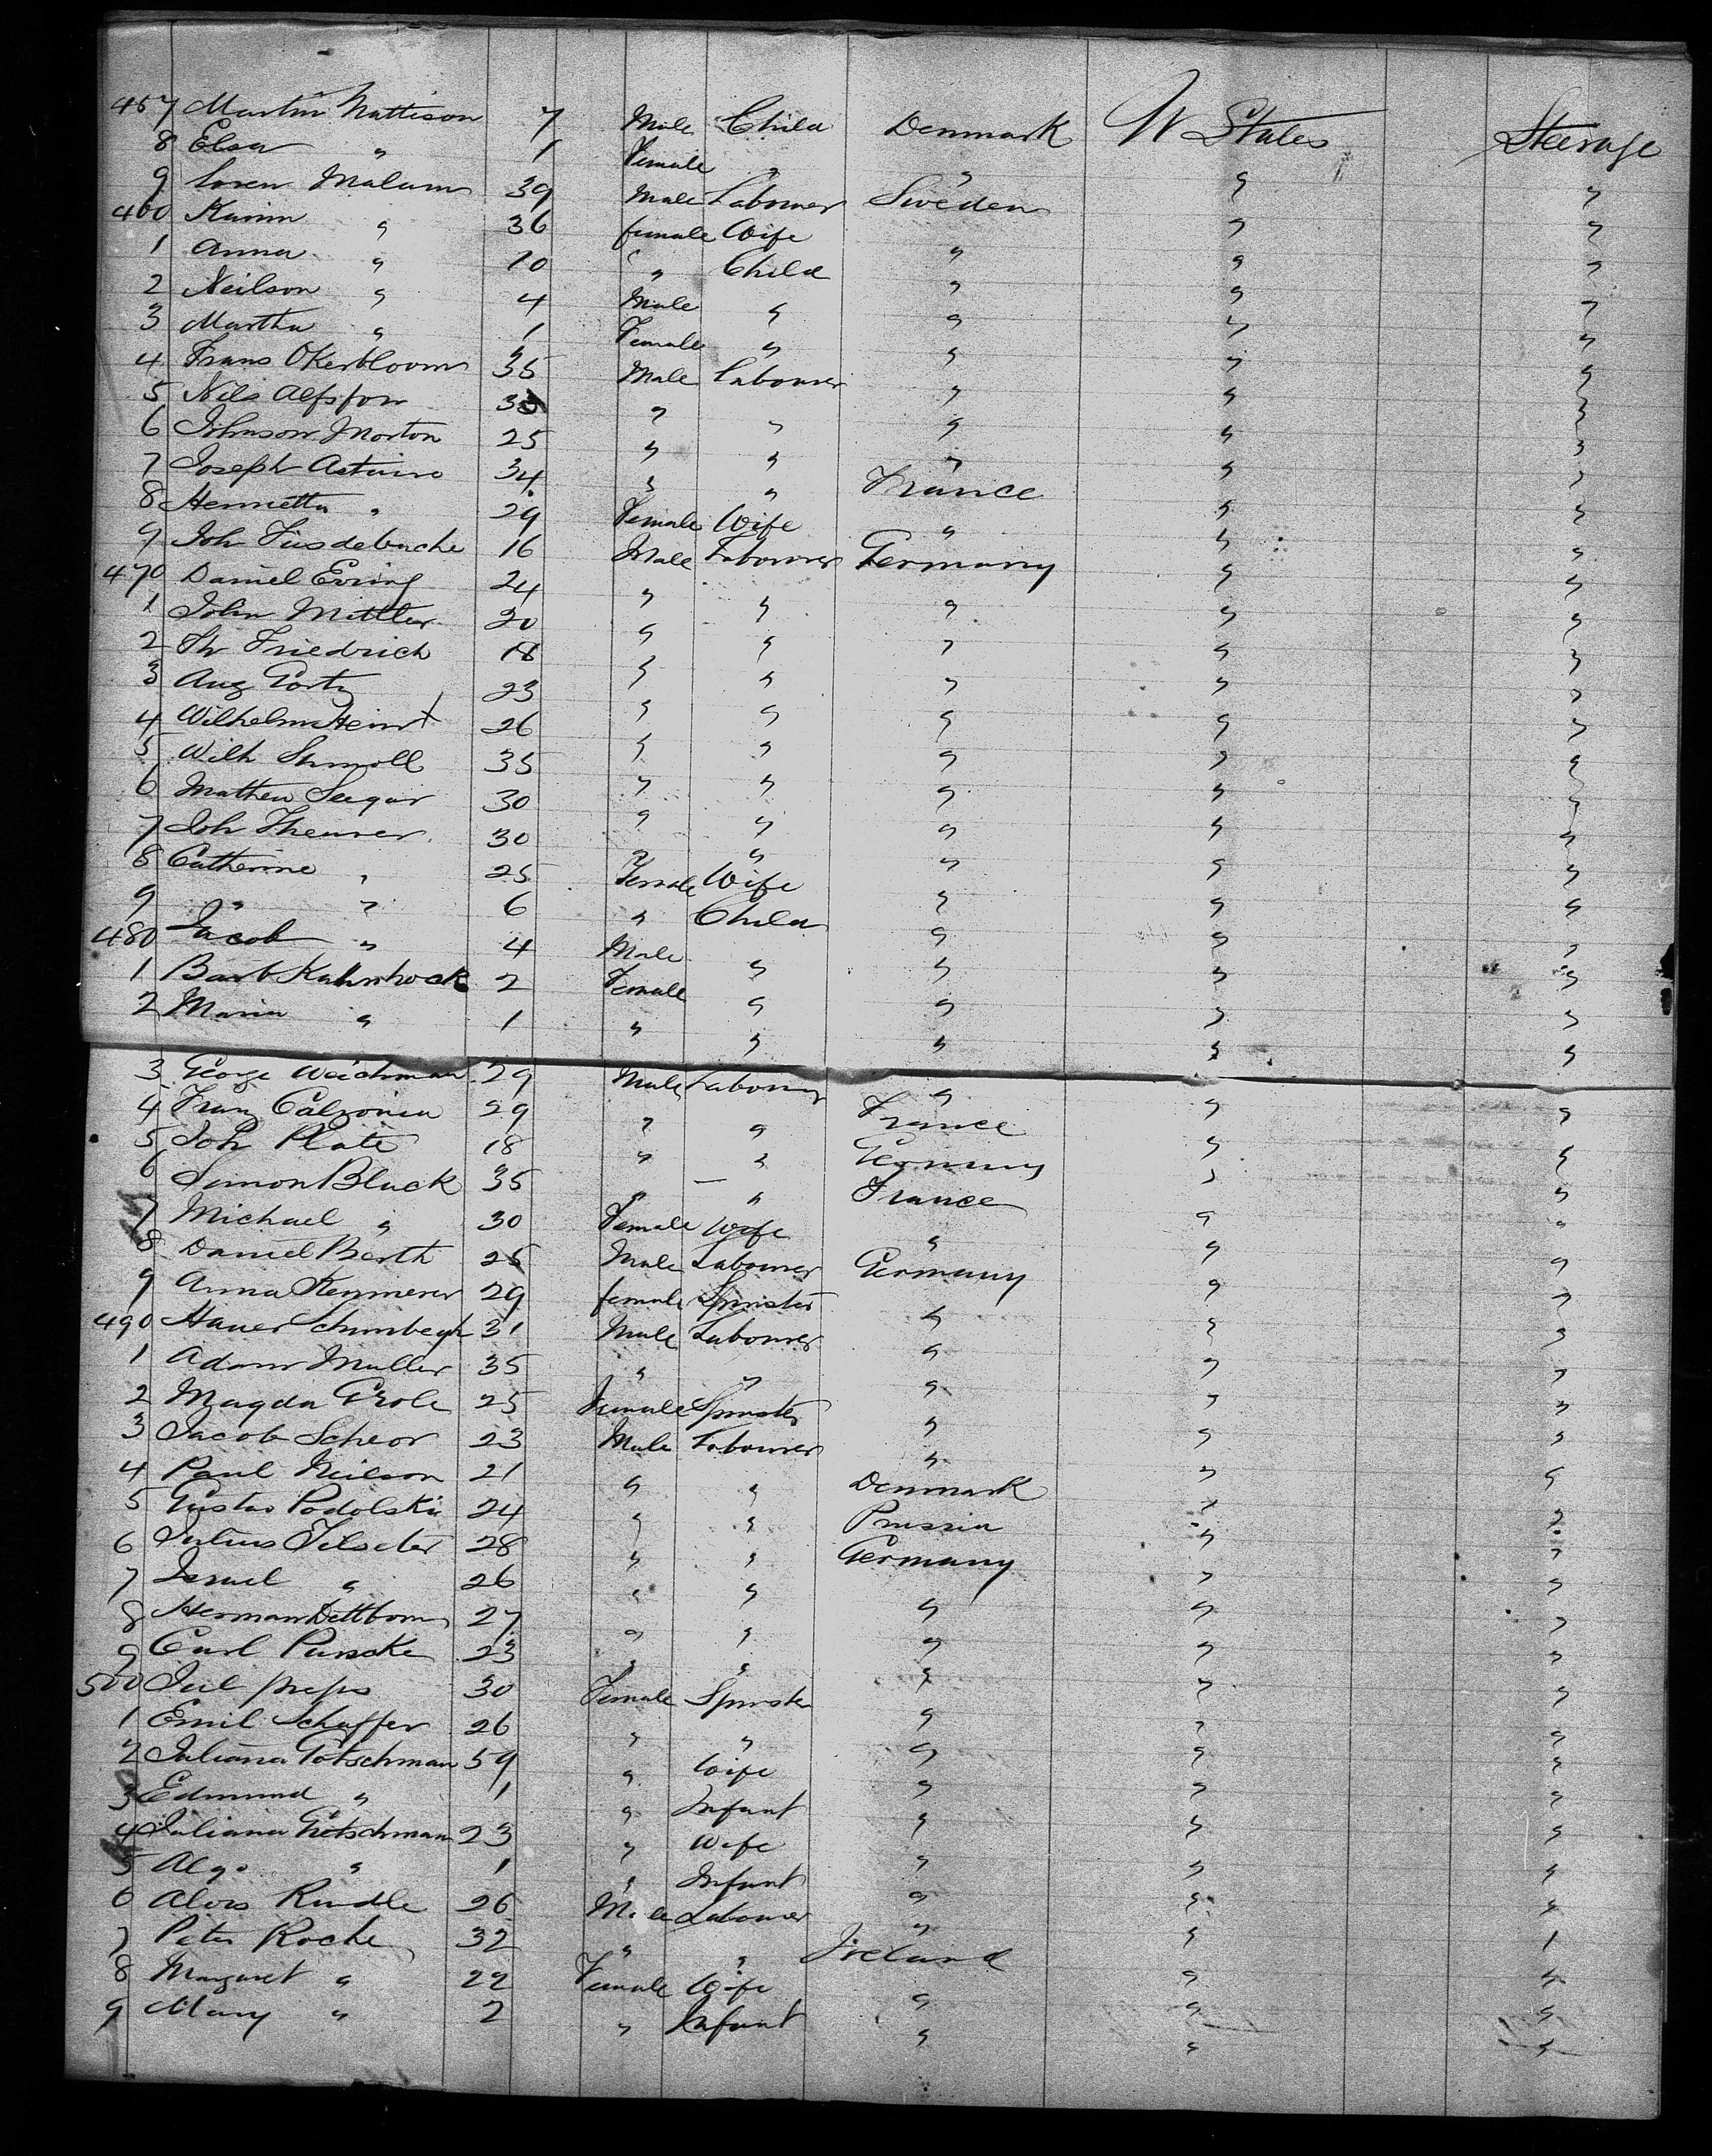 457 Martin Mattison 7 Male Child Denmark U States Steerage
8 Elsa " 1 Female " " " "
9 Soren Malum 39 Male Labourer Sweden " "
460 Karin " 36 female Wife " " "
1 Anna " 10 " Child " " "
2 Neilson " 4 Male " " " "
3 Martha " 1 Female " " " "
4 Frans Okerbloom 35 Male Labourer " " "
5 Nils Alfsson 35 " " " " "
6 Johnson Morton 25 " " " " "
7 Joseph 34 " " France " "
8 Henrietta " 29 Female Wife " " "
9 Joh 16 Male Labourer Germany " "
470 Daniel Ewing 24 " " " " "
1 John Mittler 20 " " " " "
2 Th Friedrich 18 " " " " "
3 Aug Gortz 23 " " " " "
4 Wilhelm 26 " " " " "
5 Wilh Schmoll 35 " " " " "
6 Mathew Seegar 30 " " " " "
7 Joh Theurer 30 " " " " "
8 Catherine " 25 Female Wife " " "
9 " " 6 " Child " " "
480 Jacob " 4 Male " " " "
1 Barb Kahnhock 2 Female " " " "
2 Maria " 1 " " " " "
3 George Weichman 29 Male Labourer " " "
4 Franz 29 " " France " "
5 Joh Plate 18 " " Germany " "
6 Simon Black 35 " " France " "
7 Michael " 30 Female Wife " " "
8 Daniel Barth 25 Male Labourer Germany " "
9 Anna Kemmerer 29 female Spinster " " "
490 31 Male Labourer " " "
1 Adam Muller 35 " " " " "
2 Magda 25 Female Spinster " " "
3 Jacob Scheor 23 Male Labourer " " "
4 Paul Neilson 21 " " Denmark " "
5 Gustav Podolski 24 " " Prussia " "
6 Julius 28 " " Germany " "
7 Israel " 26 " " " " "
8 Herman Dettborn 27 " " " " "
9 Carl Purscke 23 " " " " "
500 30 Female Spinster " " "
1 Emil Schaffer 26 " " " " "
2 Juliana Gotschman 59 " Wife " " "
3 Edmund " 1 " Infant " " "
4 Juliana Gotschman 23 " Wife " " "
5 " 1 " Infant " " "
6 Alois Rindle 26 Male Labourer " " "
7 Peter Roche 32 " " Ireland " "
8 Margaret " 22 Female Wife " " "
9 Mary " 2 " Infant " " "